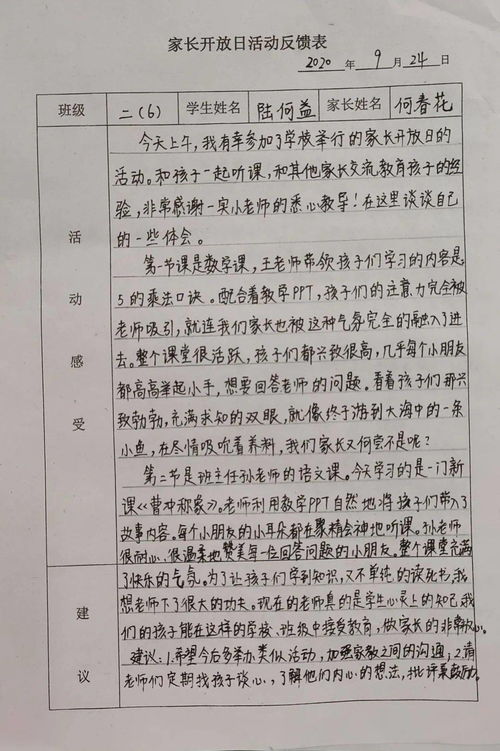 家长开放日活动反馈表
2020 年 9 月 24 日
班级 二(6) 学生姓名 陆何益 家长姓名 何春花
活动感受
今天上午,我有幸参加了学校举行的家长开放日的
活动。和孩子一起听课,和其他家长交流教育孩子的经
验,非常感谢一实小老师的悉心教导!在这里谈谈自己
的一些体会。
第一节课是数学课,王老师带领孩子们学习的内容是
5的乘法口诀。配合着教学PPT,孩子们的注意力完全被
老师吸引,就连我们家长也被这种气氛完全的融入了进
去。整个课堂很活跃,孩子们都兴致很高,几乎每个小朋友
都高高举起小手,想要回答老师的问题。看着孩子们那兴
致勃勃,充满求知的双眼,就像终于游到大海中的一条
小鱼,在尽情吸吮着养料,我们家长又何尝不是呢?
第二节是班主任孙老师的语文课。今天学习的是一门新
课《曹冲称象》。老师利用教学PPT自然地将孩子们带入了
故事内容。每个小朋友的小耳朵都在聚精会神地听课。孙老师
很耐心、很温柔地赞美每一位回答问题的小朋友。整个课堂充满
建议
了快乐的气氛。为了让孩子们学到知识,又不单纯的读死书,我
想老师下了很大的功夫。现在的老师真的是学生心灵上的知己,我
们的孩子能在这样的学校、班级中接受教育,做家长的非常放心。
建议:1.希望今后多举办类似活动,加强家教之间的沟通;2.请
老师们定期找孩子谈心,了解他们内心的想法,批评兼鼓励。